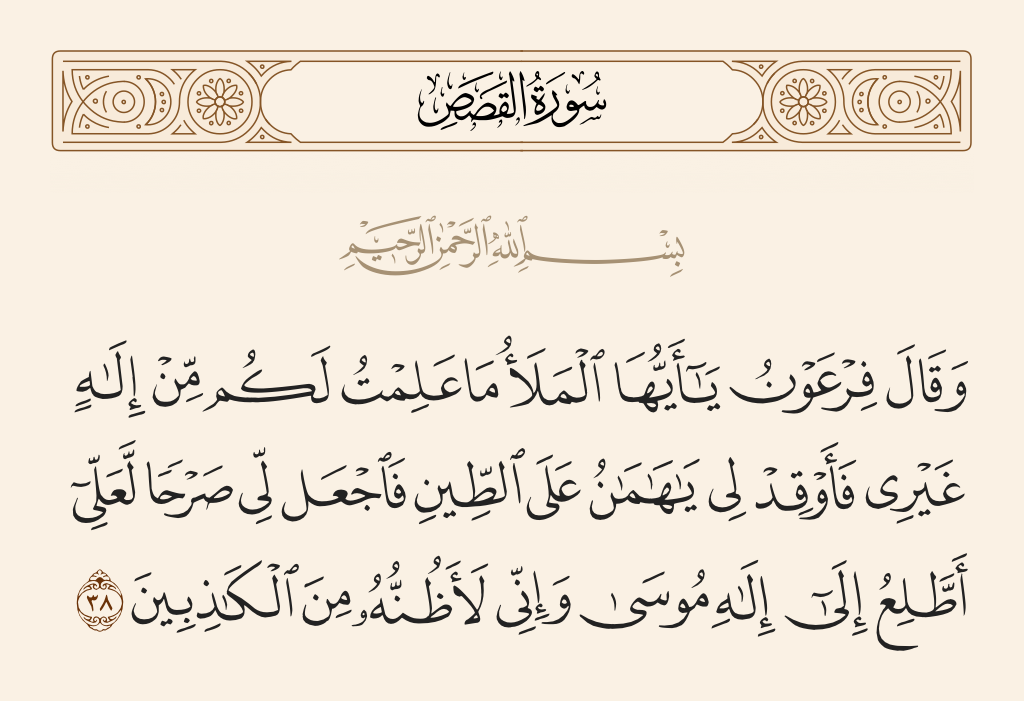 سُورَةُ القَصَصِ
بِسْمِ ٱللَّهِ ٱلرَّحْمَٰنِ ٱلرَّحِيمِ
وَقَالَ فِرْعَوْنُ يَـٰٓأَيُّهَا ٱلْمَلَأُ مَا عَلِمْتُ لَكُم مِّنْ إِلَـٰهٍ
غَيْرِى فَأَوْقِدْ لِى يَـٰهَـٰمَـٰنُ عَلَى ٱلطِّينِ فَٱجْعَل لِّى صَرْحًا لَّعَلِّىٓ
أَطَّلِعُ إِلَىٰٓ إِلَـٰهِ مُوسَىٰ وَإِنِّى لَأَظُنُّهُۥ مِنَ ٱلْكَـٰذِبِينَ ٣٨